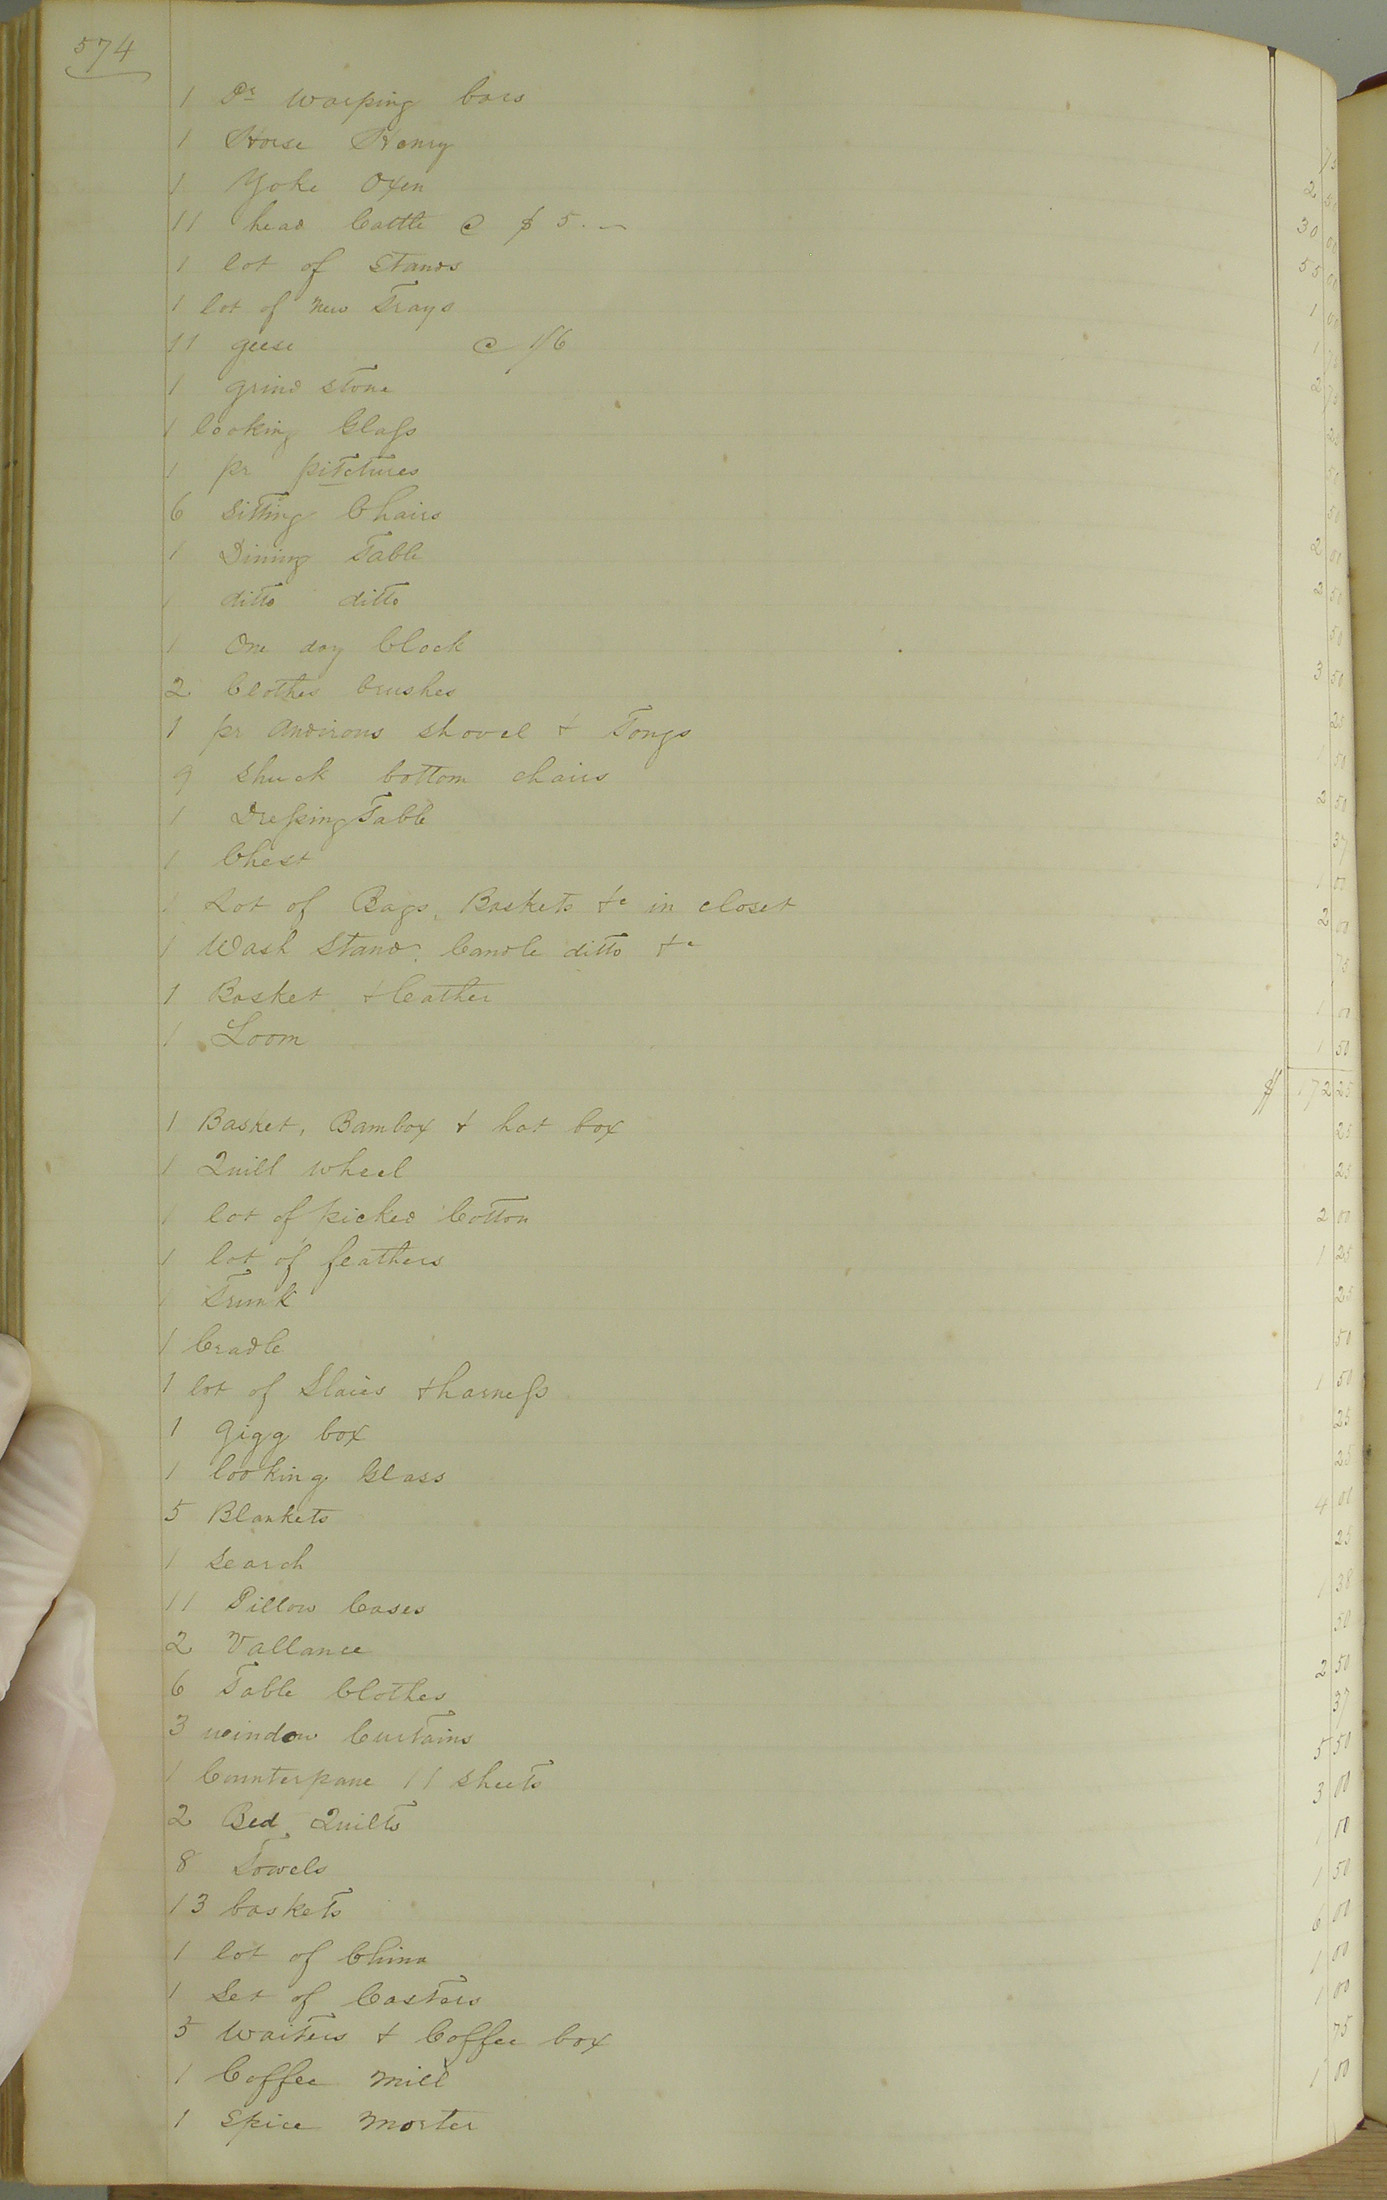 574
1 Pr warping bars 75
1 Horse Henry 2 50
1 Yoke Oxen 30 00
11 head Cattle @ $5.– 55 00
1 lot of stands 1 00
1 lot of new Trays 1
11 geese @ 1/6 2 75
1 grind stone 25
1 looking Glass 50
1 pr pitctures 50
6 Sitting Chairs 2 00
1 Dining Table 2 50
1 ditto ditto 50
1 One day Clock 3 50
2 Clothes brushes 25
1 pr Andirons shovel & Tongs 1 50
9 shuck bottom chairs 2 50
1 Dressing Table 37
1 Chest 1 00
1 Lot of Bags, Baskets &c in closet 2 00
1 Wash Stand, Candle ditto &c 75
1 Basket & leather 1 00
1 Loom 1 50
$ 172 25
1 Basket, Bambox & hat box 25
1 Quill wheel 25
1 lot of picked Cotton 2 00
1 lot of feathers 1 25
1 Trunk 25
1 Cradle 50
1 lot of Slaies & harness 1 50
1 Gigg box 25
1 looking Glass 25
5 Blankets 4 00
1 Search 25
11 Pillow Cases 1 38
2 Vallance 50
6 Table Clothes 2 50
3 window Curtains 37
1 Counterpane 11 sheets 5 50
2 Bed Quilts 3 00
8 Towels 1 00
13 baskets 1 50
1 lot of China 6 00
1 Set of Casters 1 00
5 Waiters & Coffee box 1 00
1 Coffee Mill 75
1 Spice Morter 1 00